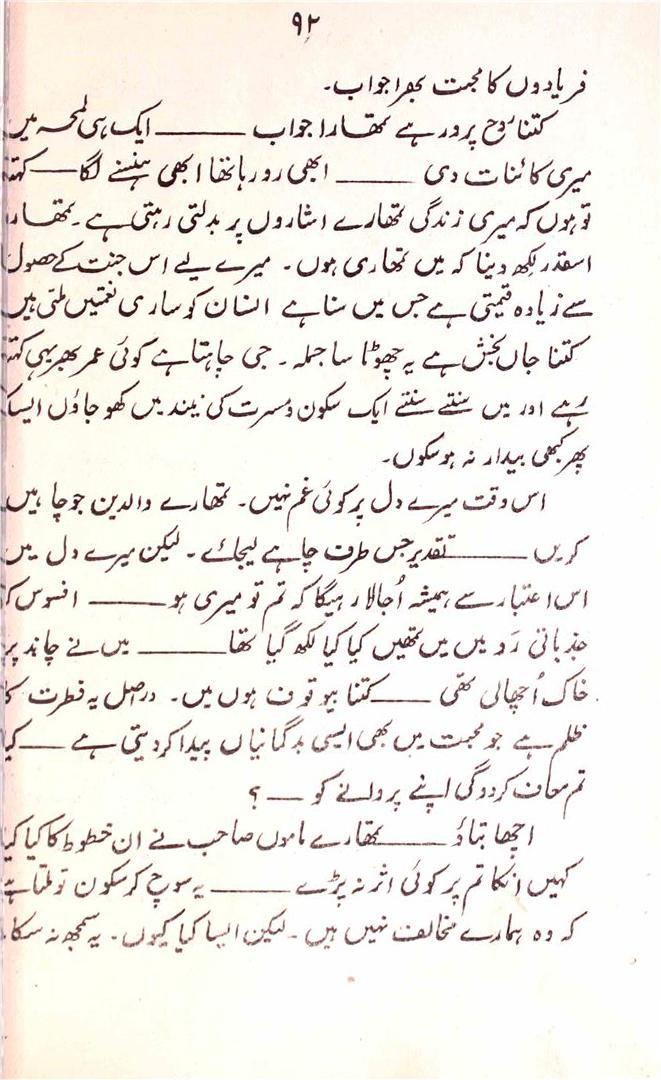 ۹۲
فریادوں کا محبت بھرا جواب۔
کتنا روح پرور ہے تمھارا جواب ——— ایک ہی لمحہ میں
میری کائنات دی ——— ابھی رو رہا تھا ابھی ہنسنے لگا —
تو ہوں کہ میری زندگی تمھارے اشاروں پر بدلتی رہتی ہے۔ تمھارا
اسقدر لکھ دینا کہ میں تمھاری ہوں۔ میرے لیے اس جنت کے حصول
سے زیادہ قیمتی ہے جس میں سنا ہے انسان کو ساری نعمتیں ملتی ہیں
کتنا جاں بخش ہے یہ چھوٹا سا جملہ۔ جی چاہتا ہے کوئی عمر بھر یہی
رہے اور میں سنتے سنتے ایک سکون و مسرت کی نیند میں کھو جاؤں
پھر کبھی بیدار نہ ہو سکوں۔
اس وقت میرے دل پر کوئی غم نہیں۔ تمھارے والدین جو چاہیں
کریں ——— تقدیر جس طرف چاہے لیجائے۔ لیکن میرے دل میں
اس اعتبار سے ہمیشہ اُجالا رہیگا کہ تم تو میری ہو ——— افسوس
جذباتی رَو میں میں تمھیں کیا کیا لکھ گیا تھا ——— میں نے چاند پر
خاک اُچھالی تھی —— کتنا بیوقوف ہوں میں۔ دراصل یہ فطرت کا
ظلم ہے جو محبت میں بھی ایسی بدگمانیاں پیدا کر دیتی ہے —— کیا
تم معاف کر دوگی اپنے پروانے کو —— ؟
اچھا بتاؤ ——— تمھارے ماموں صاحب نے ان خطوط کا کیا کیا
کہیں انکا تم پر کوئی اثر نہ پڑے ——— یہ سوچ کر سکون تو ملتا ہے
کہ وہ ہمارے مخالف نہیں ہیں۔ لیکن ایسا کیا کیوں۔ یہ سمجھ نہ سکا۔